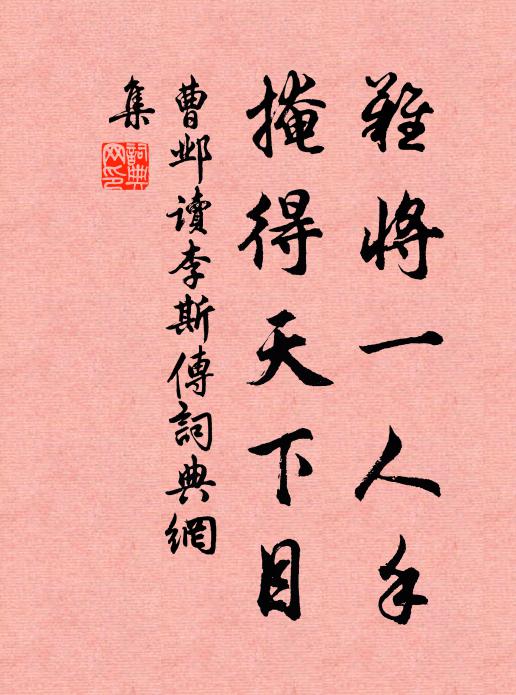 難將一人手
掩得天下目
曹鄴讀李斯傳詞典網
集
詞典
网印